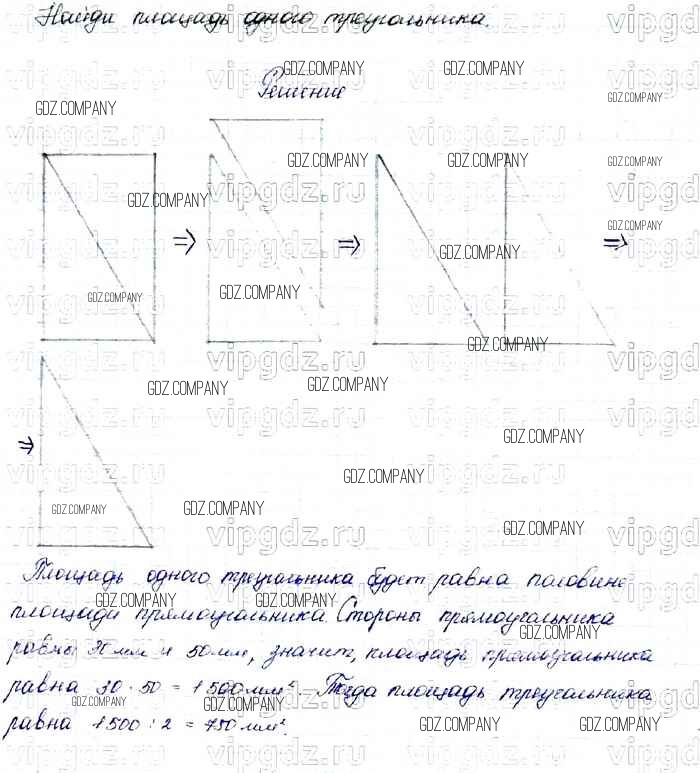 Найди площадь одного треугольника.
Решение
Площадь одного треугольника будет равна половине
площади прямоугольника. Стороны прямоугольника
равны 30 мм и 50 мм, значит, площадь прямоугольника
равна 30 · 50 = 1500 мм². Тогда площадь треугольника
равна 1500 : 2 = 750 мм².
GDZ.COMPANY
vipgdz.ru